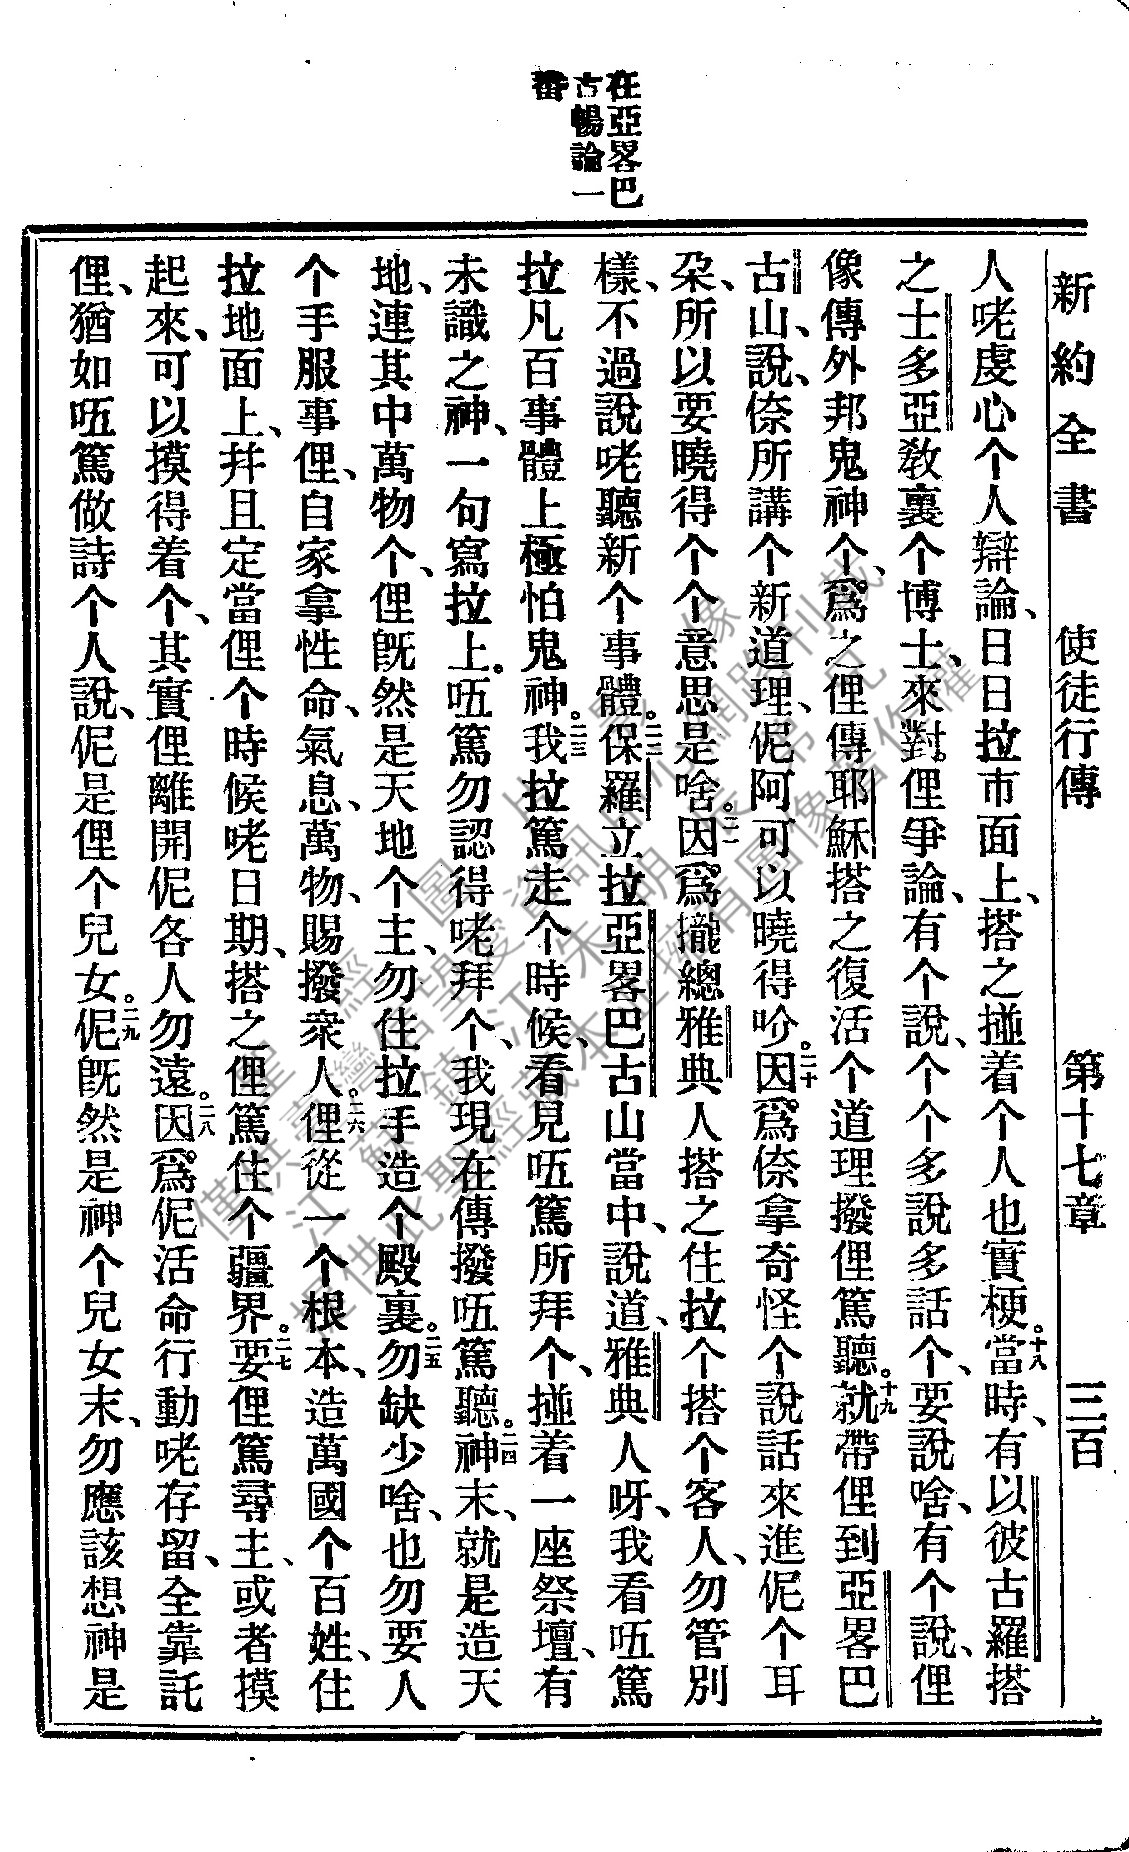 在亞畧巴
古暢論一
番
新約全書　使徒行傳　第十七章　三百
人咾虔心个人辯論、日日拉市面上、搭之掽着个人也實梗。十八當時、有以彼古羅搭
之士多亞敎裏个博士、來對俚爭論、有个說、个个多說多話个、要說啥、有个說、俚
像傳外邦鬼神个、爲之俚傳耶穌搭之復活个道理撥俚篤聽。十九就帶俚到亞畧巴
古山、說、倷所講个新道理、伲阿可以曉得吤。二十因爲倷拿奇怪个說話來進伲个耳
朶、所以要曉得个个意思是啥。二一因爲攏總雅典人搭之住拉个搭个客人、勿管別
樣、不過說咾聽新个事體。二二保羅立拉亞畧巴古山當中、說道、雅典人呀、我看㕶篤
拉凡百事體上極怕鬼神。二三我拉篤走个時候、看見㕶篤所拜个、掽着一座祭壇、有
未識之神、一句寫拉上。㕶篤勿認得咾拜个、我現在傳撥㕶篤聽。二四神末、就是造天
地、連其中萬物个、俚旣然是天地个主、勿住拉手造个殿裏。二五勿缺少啥、也勿要人
个手服事俚、自家拿性命、氣息、萬物、賜撥衆人。二六俚從一个根本、造萬國个百姓、住
拉地面上、幷且定當俚个時候咾日期、搭之俚篤住个疆界。二七要俚篤尋主、或者摸
起來、可以摸得着个、其實俚離開伲各人勿遠。二八因爲伲活命行動咾存留、全靠託
俚、猶如㕶篤做詩个人說、伲是俚个兒女。二九伲旣然是神个兒女末、勿應該想神是